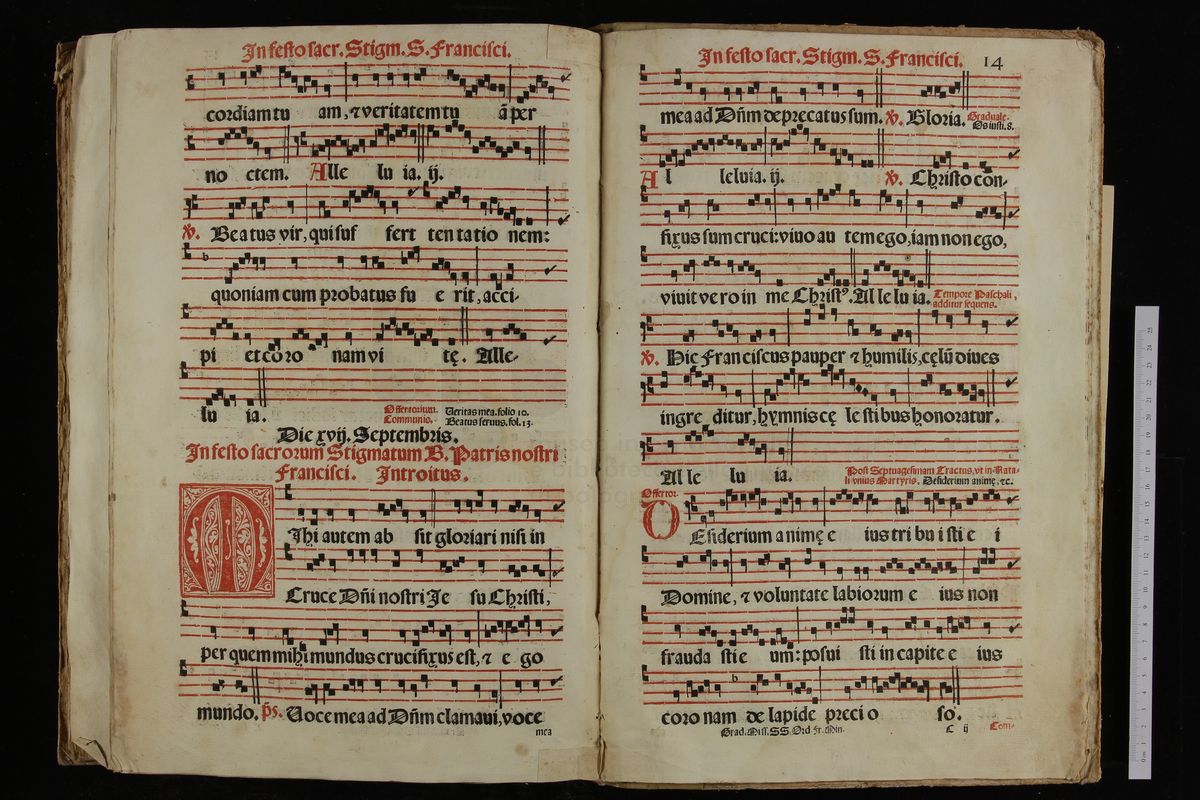 In festo sacr. Stigm. S. Francisci.
cordiam tu am, ⁊ veritatem tu ā per
no ctem. Alle lu ia. ij.
℣. Beatus vir, qui suf fert ten ta tio nem:
quoniam cum probatus fu e rit, acci-
pi et co ro nam vi tę. Alle-
lu ia.
Offertorium. Veritas mea. folio 10.
Communio. Beatus seruus. fol. 13.
Die xvij. Septembris.
In festo sacrorum Stigmatum B. Patris nostri
Francisci. Introitus.
MIhi autem ab sit gloriari nisi in
Cruce Dñi nostri Je su Christi,
per quem mihi mundus crucifixus est, ⁊ e go
mundo. p̄s. Voce mea ad Dñm clamaui, voce
mea
In festo sacr. Stigm. S. Francisci. 14
mea ad Dñm deprecatus sum. ℣. Gloria. Graduale.
Os iusti. 8.
Al leluia. ij. ℣. Christo con-
fixus sum cruci: viuo au tem ego, iam non ego,
viuit ve ro in me Christꝰ. Al le lu ia. Tempore Paschali,
additur sequens.
℣. Hic Franciscus pauper ⁊ humilis, cęlū diues
ingre ditur, hymnis cę le sti bus honoratur.
Al le lu ia. Post Septuagesimam Tractus, vt in Nata-
li vnius Martyris. Desiderium animę. ⁊c.
Offertor.
DEsiderium a nimę e ius tri bu i sti e i
Domine, ⁊ voluntate labiorum e ius non
frauda sti e um: posui sti in capite e ius
coro nam de lapide preci o so.
Grad. Miss. SS. Ord. Fr. Min. C ij Com-